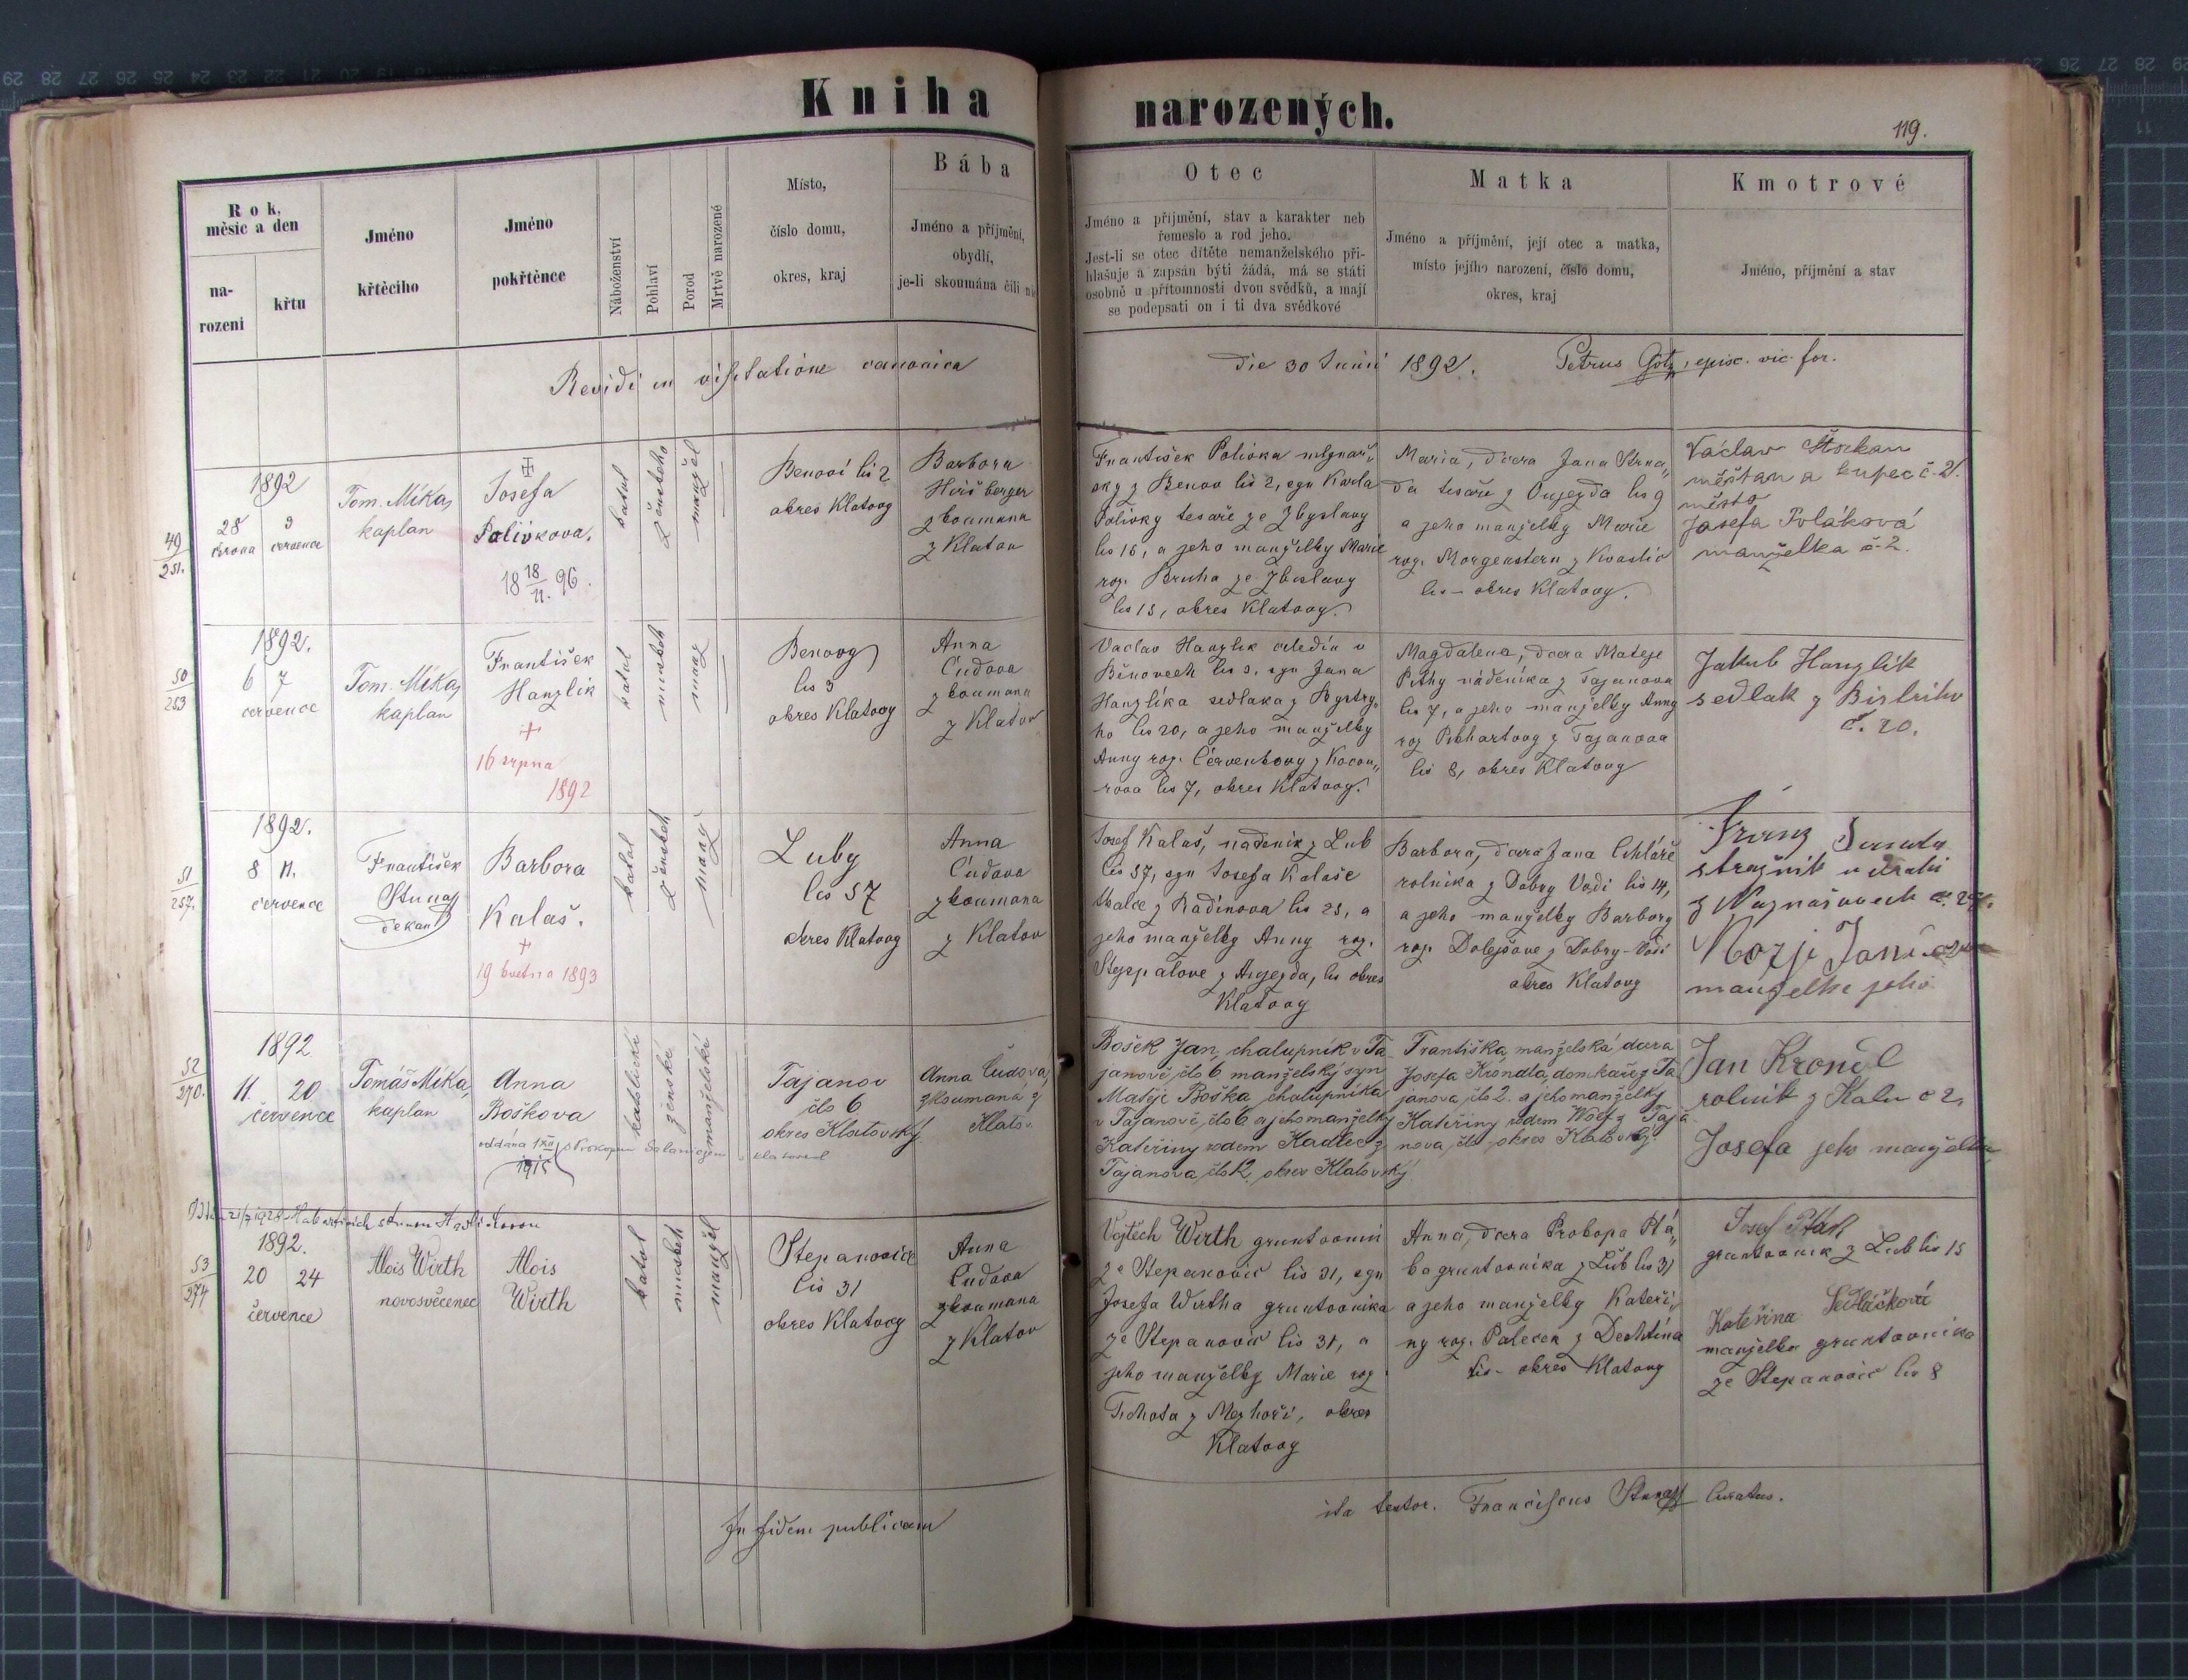 Kniha narozených.
119.
Rok, měsíc a den
narození
křtu
Jméno křtěcího
Jméno pokřtěnce
Náboženství
Pohlaví
Porod
Mrtvě narozené
Místo,
číslo domu,
okres, kraj
Bába
Jméno a příjmění,
obydlí,
je-li skoumána čili
Otec
Jméno a příjmění, stav a karakter neb
řemeslo a rod jeho.
Jest-li se otec dítěte nemanželského při-
hlašuje a zapsán býti žádá, má se státi
osobně u přítomnosti dvou svědků, a mají
se podepsati on i ti dva svědkové
Matka
Jméno a příjmění, její otec a matka,
místo jejího narození, číslo domu,
okres, kraj
Kmotrové
Jméno, příjmění a stav
Revidi in visitatione canonica die 30 Junii 1892. Petrus Götz, episc. vic. for.
49
251.
1892
28 9
června července
Tom. Míka,
kaplan
Josefa
Polivkova.
18 18/11. 96.
katol
ženskeho
manžel
Benovi čis 2
okres Klatovy
Barbora
Hiršberger
zkoumana
z Klatov
František Polivka mlynař-
sky z Benov čis 2, syn Karla
Polivky tesaře ze Zbyslavy
čis 15, a jeho manželky Marie
roz. Bruha ze Zbislavy
čis 15, okres Klatovy.
Maria, dcera Jana Strna-
da tesaře z Oujezda čis 9
a jeho manželky Marie
roz. Morgenstern z Kvaslic
čis - okres Klatovy.
Václav
měštan a kupec č. 21.
město
Josefa Poláková
manželka č. 2.
50
253
1892.
6 7
července
Tom. Míka,
kaplan
František
Hanzlík
16 srpna
1892
katol
mužsk
manž
Benovy
čis 3
okres Klatovy
Anna
Čudova
zkoumana
z Klatov
Vaclav Hanzlik čeledín v
Běnovech čis 3, syn Jana
Hanzlíka sedlaka z Bystry-
ho čis 20, a jeho manželky
Anny roz. Červenkovy z Kocou-
rova čis 7, okres Klatovy.
Magdalena, dcera Mateje
nádeníka z Tajanova
čis 7, a jeho manželky Anny
roz z Tajanova
čis 8, okres Klatovy
Jakub Hanzlík
sedlak z Bistriho
č. 20.
51
257.
1892.
8 11.
července
František
Stunaff
dekan
Barbora
Kalaš.
19 května 1893
katol
žensk
manž
Luby
čis 57
okres Klatovy
Anna
Čudova
zkoumana
z Klatov
Josef Kalaš, nadeník z Lub
čis 57, syn Josefa Kalaše
tkalce z Radinova čis 25, a
jeho manželky Anny roz.
z Aujezda, čis okres
Klatovy
Barbora, dcera Jana Cihláře
rolníka z Dobry Vodi čis 14,
a jeho manželky Barbory
roz. Dolejšove z Dobry-Vodi
okres Klatovy
Franz
stražník u drahi
z
manželka jeho
52
270.
1892
11. 20
července
Tomáš Míka,
kaplan
Anna
Boškova
oddána 1/XII 1915 s Prokopem
katolické
ženské
manželské
Tajanov
čslo 6
okres Klatovský
Anna Čudova,
zkoumaná z
Klatov
Bošek Jan, chalupník v Ta-
janově, čslo 6 manželský syn
Matěje Boška, chalupníka
v Tajanově, čslo 6 a jeho manželky
Kateřiny rodem Kadlec z
Tajanova, čslo 12, okres Klatovský.
Františka, manželská dcera
Josefa Krondla, domkaře z Ta-
janova, čslo 2. a jeho manželky
Kateřiny rodem Wolf z Taja-
nova, čslo - okres Klatovský.
Jan Krondl
rolník z Kalu č 2,
Josefa jeho manželka
53
274
1892.
20 24
července
Alois Wirth
novosvěcenec
Alois
Wirth
katol
mužsk
manžel
Stepanovice
čis 31
okres Klatovy
Anna
Čudova
zkoumana
z Klatov
Vojtěch Wirth gruntovník
ze Stepanovic čis 31, syn
Josefa Wirtha gruntovníka
ze Stepanovic čis 31, a
jeho manželky Marie roz
Tichota z Mezhoří, okres
Klatovy
Anna, dcera Prokopa Ptá-
ka gruntovníka z Lub čis 31
a jeho manželky Kateři-
ny roz. Palecek z Dechtína
čis - okres Klatovy
Josef Pták
gruntovník z Lub čis 15
Kateřina Sedláčková
manželka gruntovníka
ze Stepanovic čis 8
In fidem publicam
ita testor. Franciscus Stunaff Curatus.